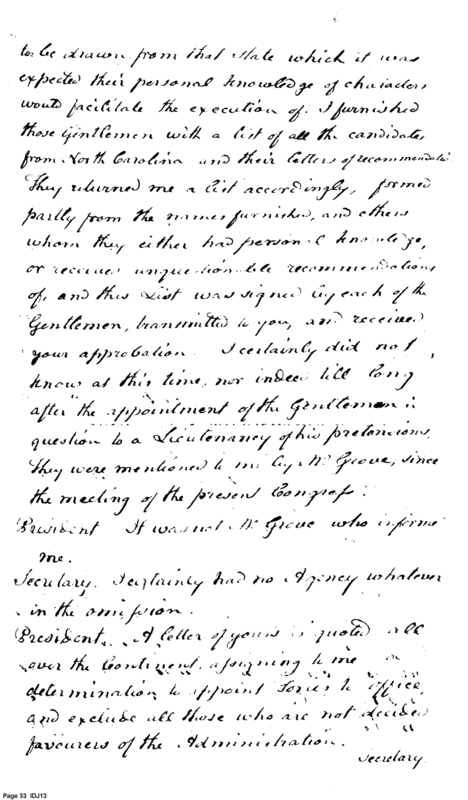 to be drawn from that State which it was
expected their personal knowledge of characters
would facilitate the execution of. I furnished
those Gentlemen with a list of all the candidates
from North Carolina and their letters of recommendatio
They returned me a list accordingly, formed
partly from the names furnished, and others
whom they either had personal knowledge,
or received unquestionable recommendations
of, and this List was signed by each of the
Gentlemen, transmitted to you, and received
your approbation. I certainly did not
know at this time, nor indeed till long
after the appointment of the Gentleman in
question to a Lieutenancy of his pretencions.
They were mentioned to me by Mr Grove, since
the meeting of the present Congress.
President It was not Mr Grove who informed
me.
Secretary. I certainly had no Agency whatever
in the omission.
President. A letter of yours is quoted all
over the Continent, assigning to me a
determination to appoint Tories to office,
and exclude all those who are not decided
favourers of the Administration.
Secretary
Page 33 IDJ13